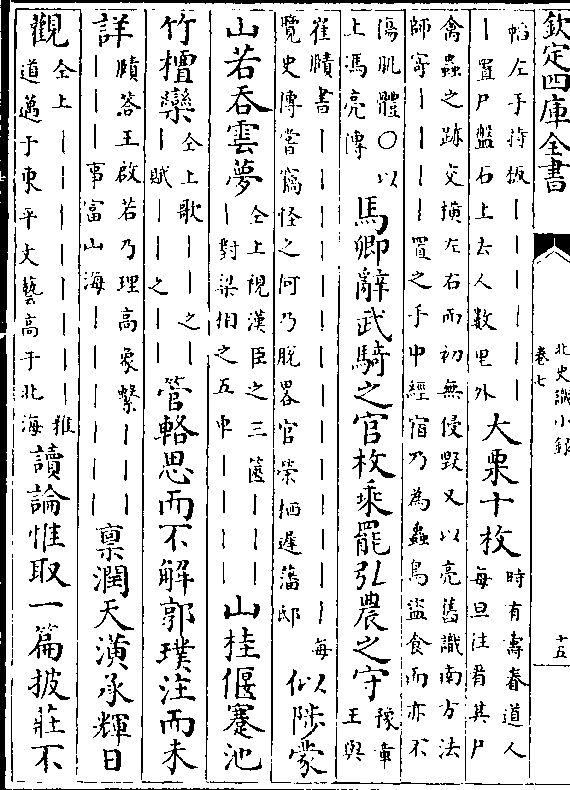 欽定四庫全書
北史識小錄
卷七
十五
幍左手持板｜｜｜｜｜｜
｜置尸盤石上去人數里外
大栗十枚
時有壽春道人
每旦往看其尸
禽蟲之跡交横左右而初無侵毀又以亮舊識南方法
師寄｜｜｜｜｜置之手中經宿乃為蟲鳥盜食而亦不
傷肌體〇以
上馮亮傳
馬卿辭武騎之官枚乘罷弘農之守
豫章
王與
崔賾書｜｜｜｜｜｜｜｜｜｜｜｜｜｜每
覽史傳嘗竊怪之何乃脫畧官榮栖遲藩邸
似陟蒙
山若吞雲夢
仝上視漢臣之三篋｜｜｜
｜對梁相之五車｜｜｜｜
山桂偃蹇池
竹檀欒
仝上歌｜｜之｜
｜賦｜｜之｜｜
管輅思而不解郭璞注而未
詳
賾答王啟若乃理高象繫｜｜｜
｜｜｜事富山海｜｜｜｜｜｜
禀潤天潢承輝日
觀
仝上｜｜｜｜｜｜｜｜雅
道邁于東平文藝高于北海
讀論惟取一篇披莊不